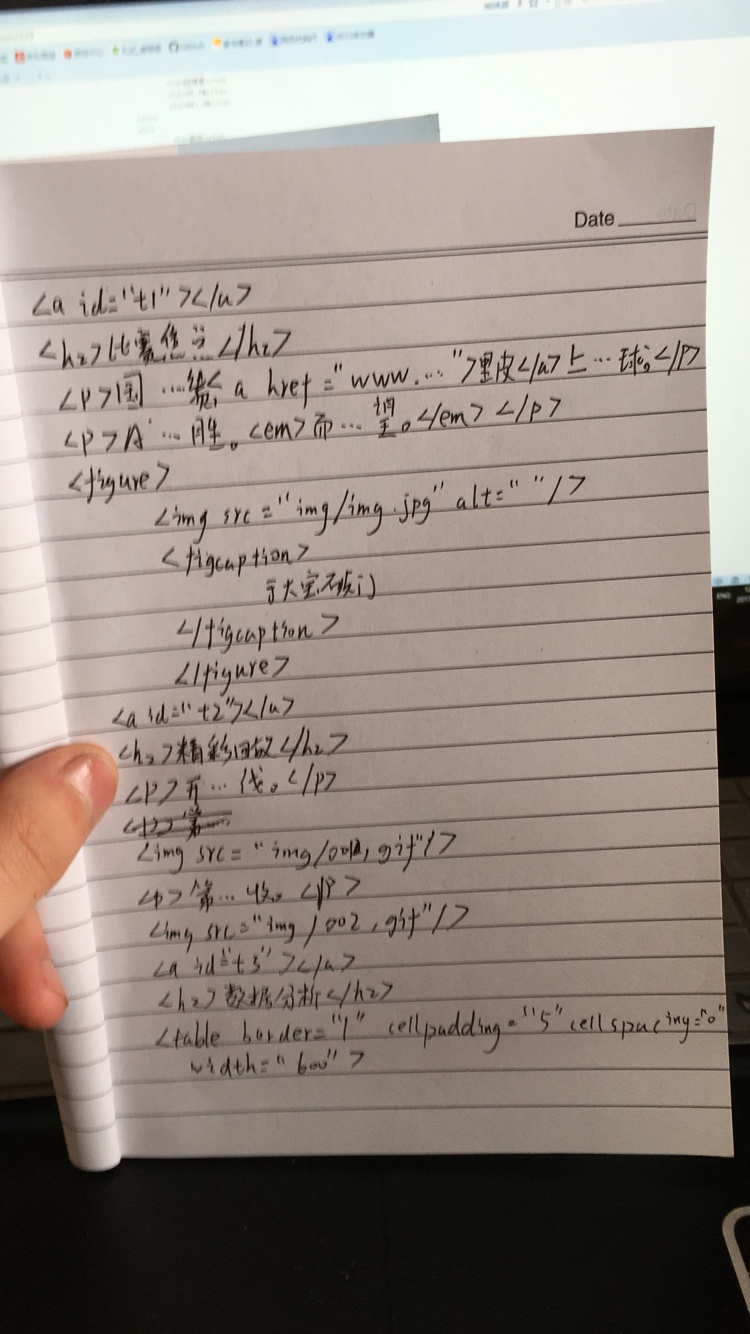 Date
<a id="t1"></a>
<h2>比赛焦点</h2>
<p>国...绩<a href="www....">里皮</a>上...球。</p>
<p>A...胜。<em>而...望。</em></p>
<figure>
<img src="img/img.jpg" alt=" "/>
<figcaption>
于大宝破门
</figcaption>
</figure>
<a id="t2"></a>
<h2>精彩回放</h2>
<p>开...线。</p>
<img src="img/001.gif"/>
<p>第...收。</p>
<img src="img/002.gif"/>
<a id="t3"></a>
<h2>数据分析</h2>
<table border="1" cellpadding="5" cellspacing="0"
width="600">
ENG